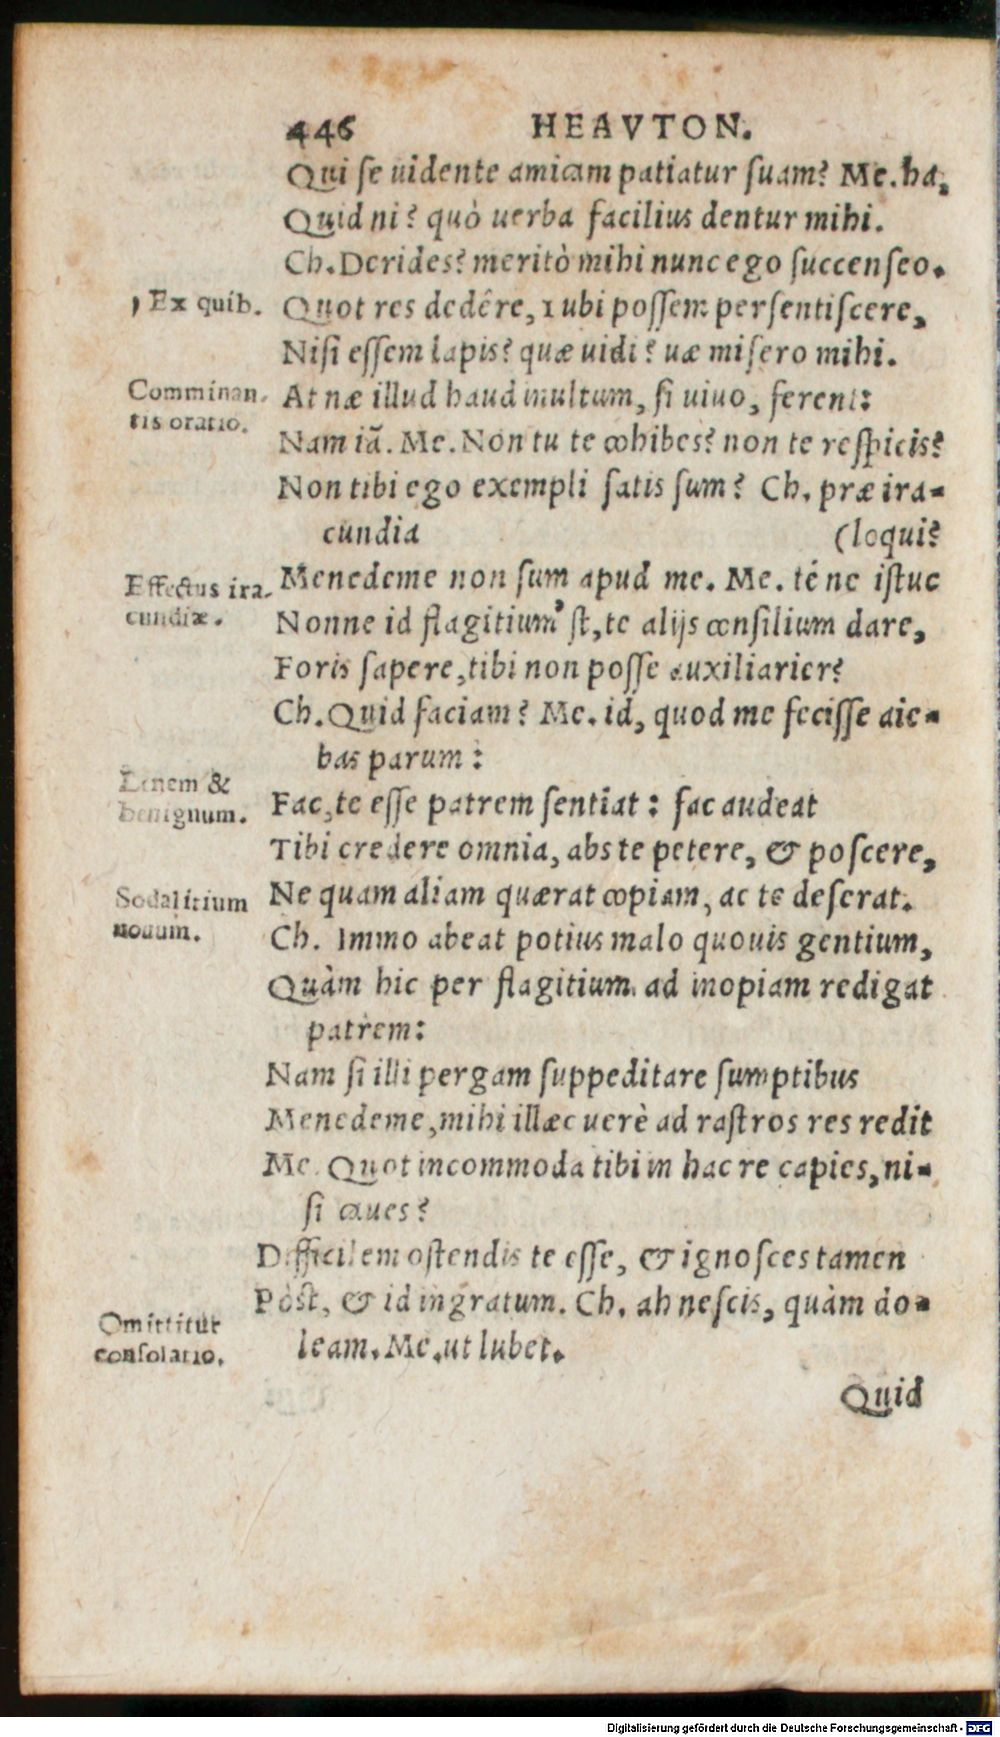 446 HEAVTON.
Qui se uidente amicam patiatur suam? Me. ha,
Quid ni? quò uerba facilius dentur mihi.
Ch. Derides? meritò mihi nunc ego succenseo.
, Ex quib.
Quot res dedêre, 1 ubi possem persentiscere,
Nisi essem lapis? quæ uidi? uæ misero mihi.
Comminan-
tis oratio.
At næ illud haud inultum, si uiuo, ferent:
Nam iā. Me. Non tu te cohibes? non te respicis?
Non tibi ego exempli satis sum? Ch. præ ira-
cundia (loqui?
Effectus ira-
cundiæ.
Menedeme non sum apud me. Me. té ne istuc
Nonne id flagitium'st, te alijs consilium dare,
Foris sapere, tibi non posse auxiliarier?
Ch. Quid faciam? Me. id, quod me fecisse aie-
bas parum:
Lenem &
benignum.
Fac, te esse patrem sentiat: fac audeat
Tibi credere omnia, abs te petere, & poscere,
Sodalitium
nouum.
Ne quam aliam quærat copiam, ac te deserat.
Ch. Immo abeat potius malo quouis gentium,
Quàm hic per flagitium ad inopiam redigat
patrem:
Nam si illi pergam suppeditare sumptibus
Menedeme, mihi illæc uerè ad rastros res redit
Me. Quot incommoda tibi in hac re capies, ni-
si caues?
Difficilem ostendis te esse, & ignosces tamen
Omittitur
consolatio.
Pòst, & id ingratum. Ch. ah nescis, quàm do-
leam. Me. ut lubet.
Quid
Digitalisierung gefördert durch die Deutsche Forschungsgemeinschaft - DFG